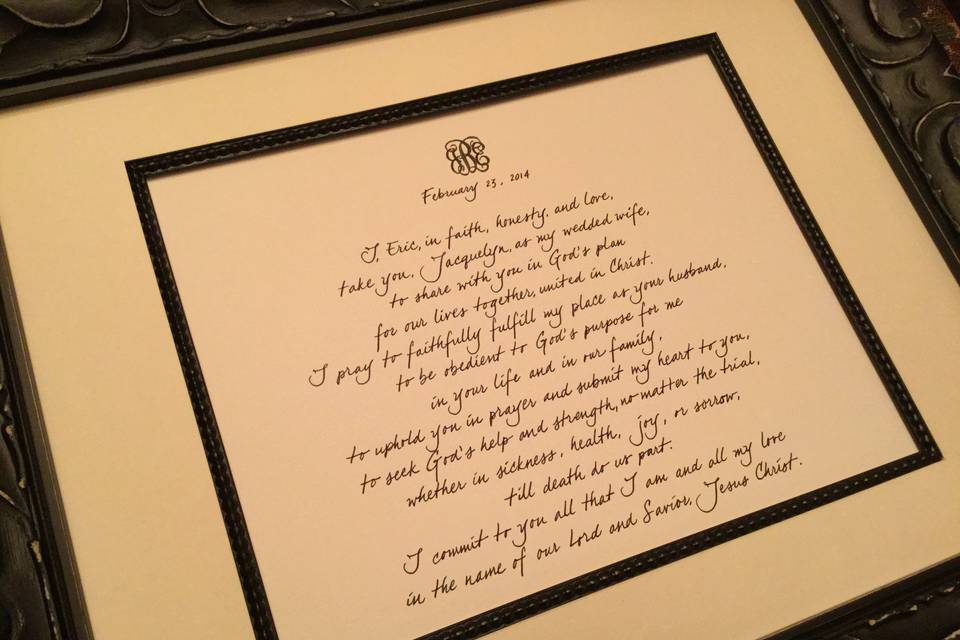 February 23, 2014
I, Eric, in faith, honesty, and love,
take you, Jacquelyn, as my wedded wife,
to share with you in God's plan
for our lives together, united in Christ.
I pray to faithfully fulfill my place as your husband,
to be obedient to God's purpose for me
in your life and in our family,
to uphold you in prayer and submit my heart to you,
to seek God's help and strength, no matter the trial,
whether in sickness, health, joy, or sorrow,
till death do us part.
I commit to you all that I am and all my love
in the name of our Lord and Savior, Jesus Christ.